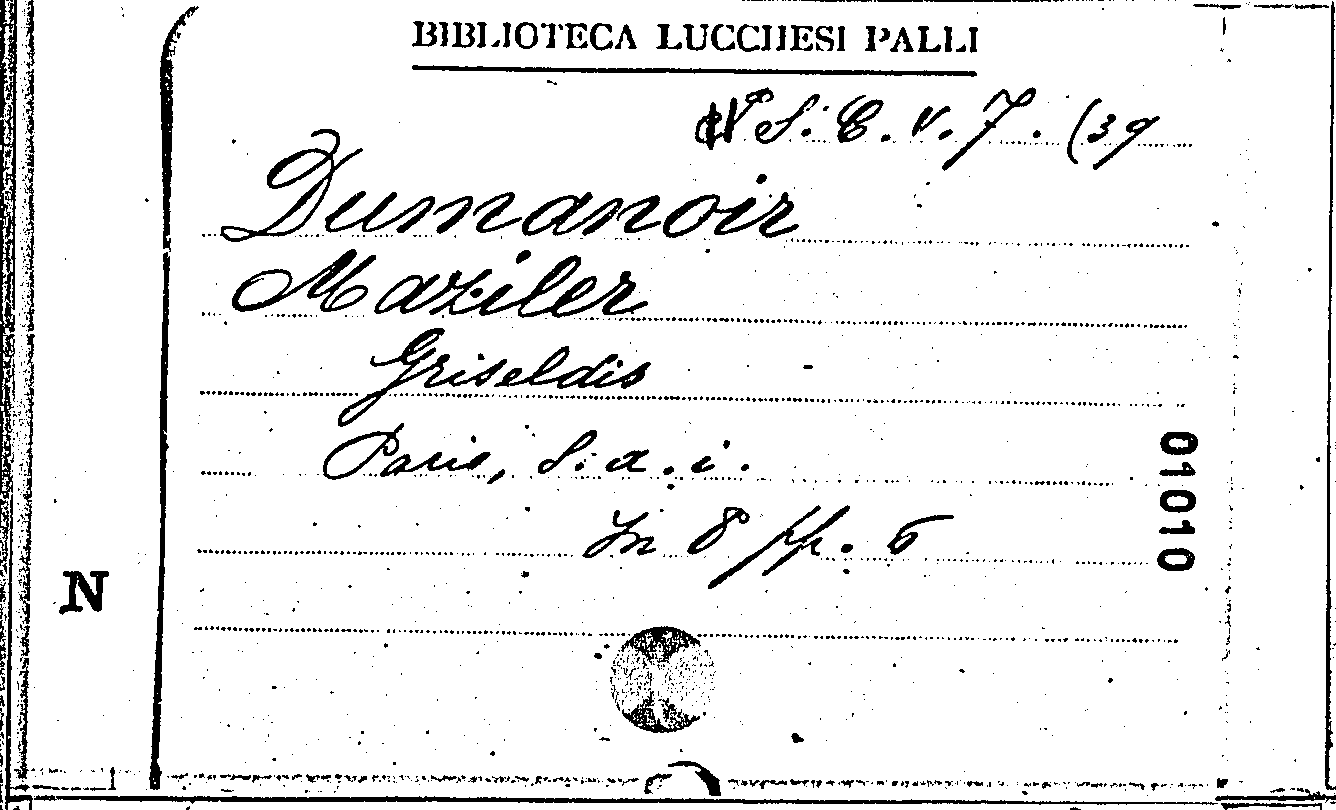 BIBLIOTECA LUCCHESI PALLI
S. C. V. 7. (39
Dumanoir
Maziler
Griseldis
Paris, S. a. i.
In 8 pp. 6
01010
N